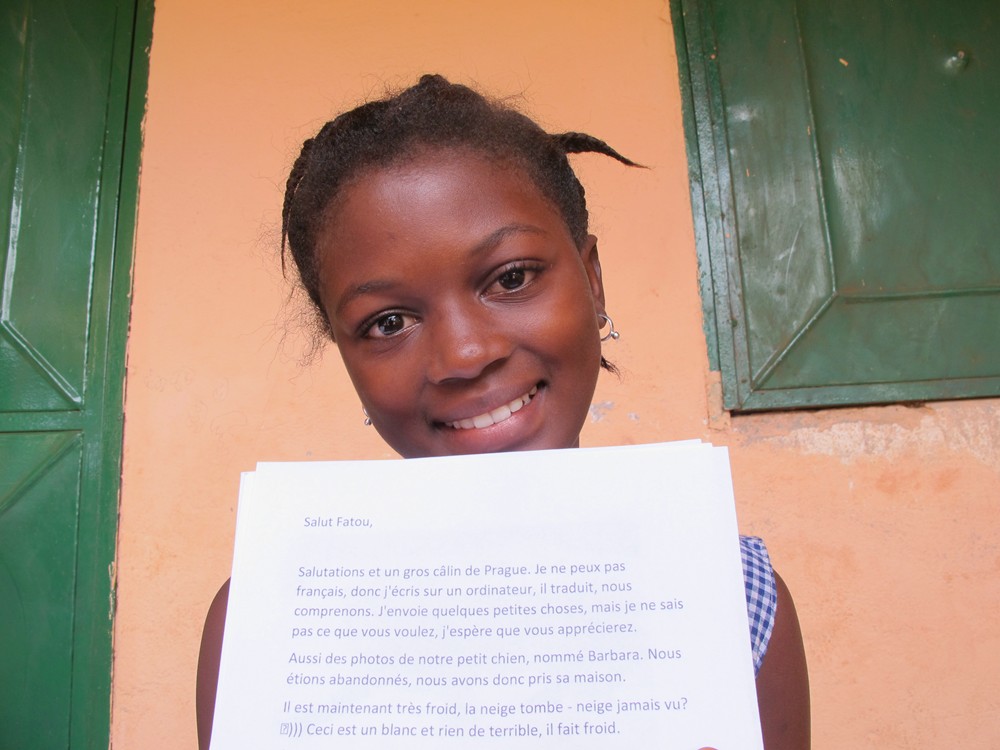 Salut Fatou,
Salutations et un gros câlin de Prague. Je ne peux pas
français, donc j'écris sur un ordinateur, il traduit, nous
comprenons. J'envoie quelques petites choses, mais je ne sais
pas ce que vous voulez, j'espère que vous apprécierez.
Aussi des photos de notre petit chien, nommé Barbara. Nous
étions abandonnés, nous avons donc pris sa maison.
Il est maintenant très froid, la neige tombe - neige jamais vu?
⍰))) Ceci est un blanc et rien de terrible, il fait froid.